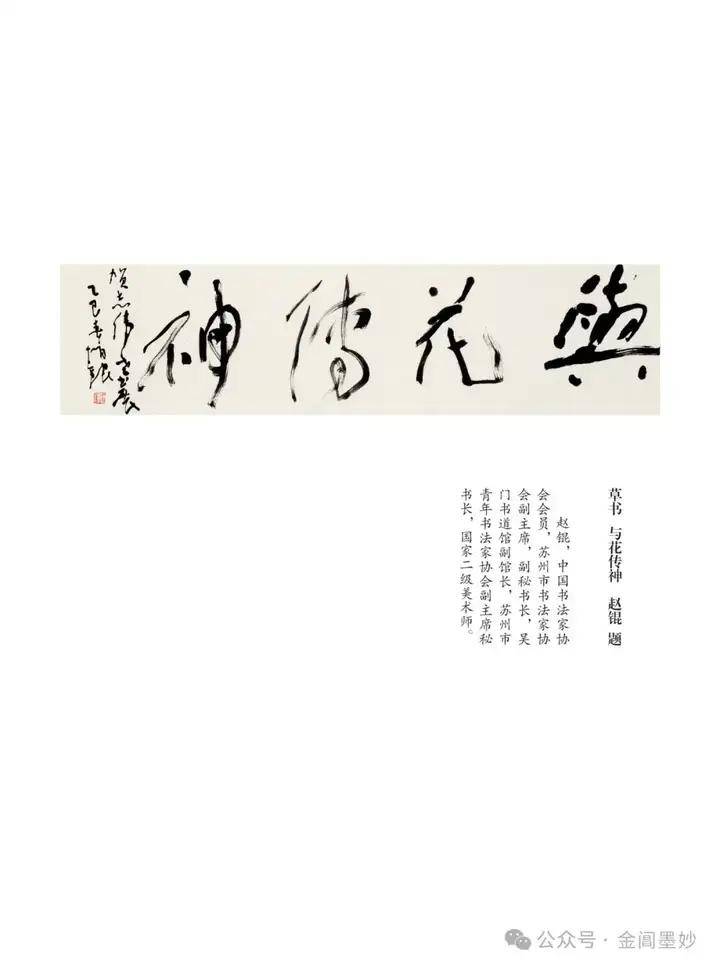 與花傳神
賀志偉書畫展
乙巳春月趙錕
草书 与花传神 赵锟 题
赵锟，中国书法家协
会会员，苏州市书法家协
会副主席，副秘书长，吴
门书道馆副馆长，苏州市
青年书法家协会副主席秘
书长，国家二级美术师。
公众号·金阊墨妙